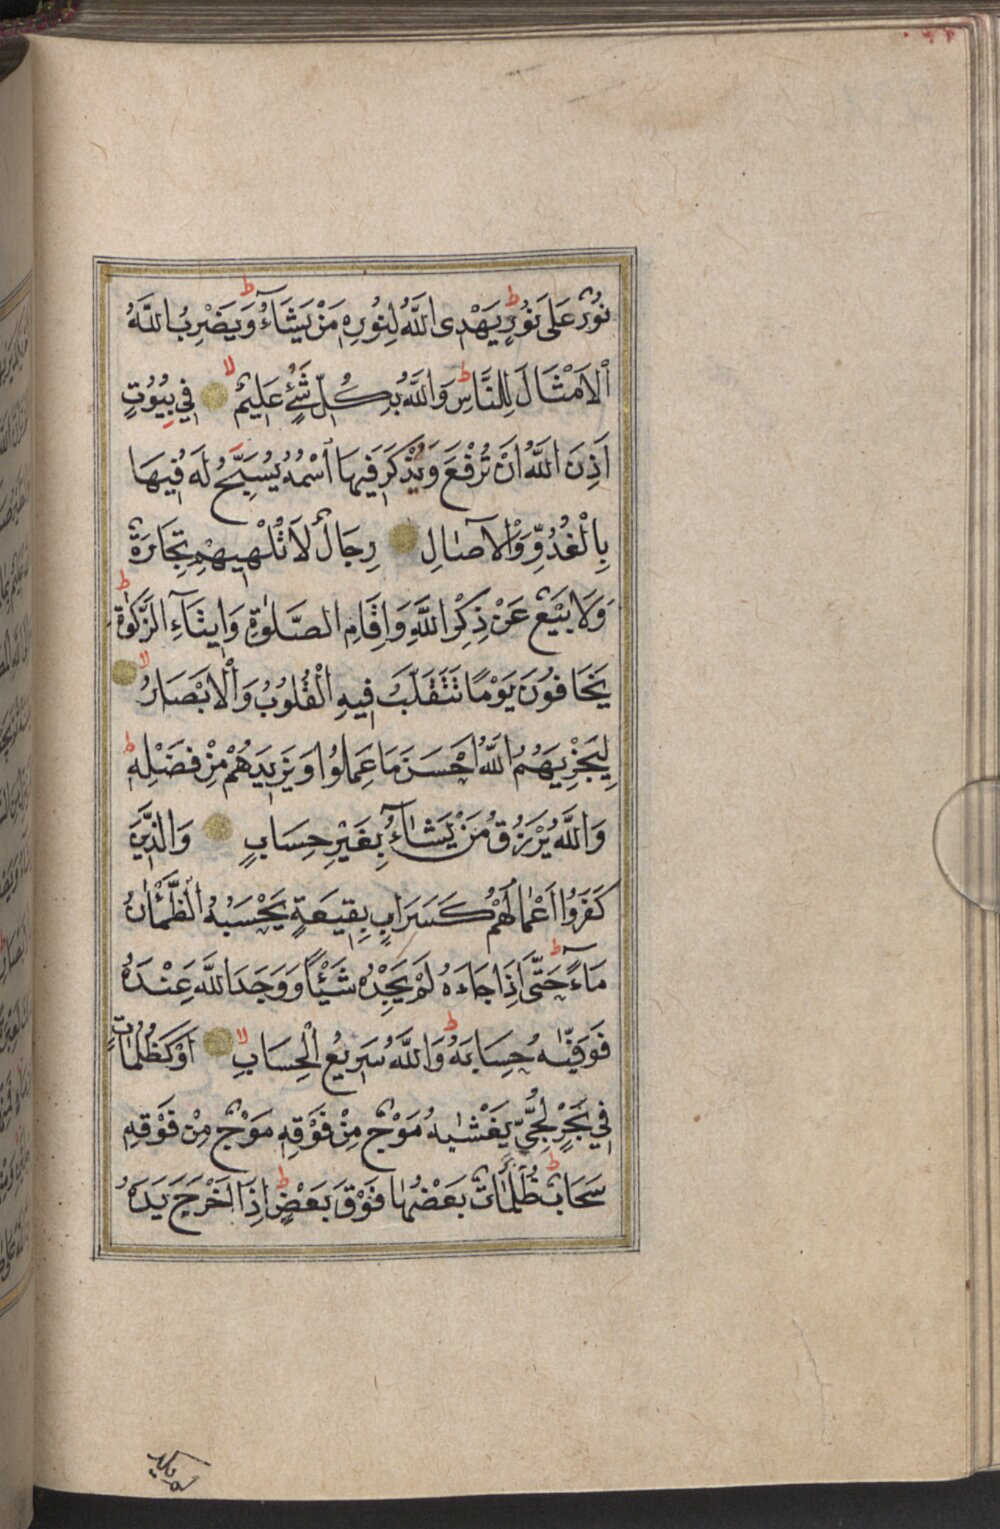 نُورٌ عَلَى نُورٍ ط يَهْدِى اللَّهُ لِنُورِهِ مَنْ يَشَآءُ ط وَيَضْرِبُ اللَّهُ
الْاَمْثَالَ لِلنَّاسِ ط وَاللَّهُ بِكُلِّ شَىْءٍ عَلِيمٌ لا فِى بُيُوتٍ
اَذِنَ اللَّهُ اَنْ تُرْفَعَ وَيُذْكَرَ فِيهَا اسْمُهُ يُسَبِّحُ لَهُ فِيهَا
بِالْغُدُوِّ وَالْاٰصَالِ رِجَالٌ لَا تُلْهِيهِمْ تِجَارَةٌ
وَلَا بَيْعٌ عَنْ ذِكْرِ اللَّهِ وَاِقَامِ الصَّلٰوةِ وَاِيتَآءِ الزَّكٰوةِ ط
يَخَافُونَ يَوْمًا تَتَقَلَّبُ فِيهِ الْقُلُوبُ وَالْاَبْصَارُ لا
لِيَجْزِيَهُمُ اللَّهُ اَحْسَنَ مَا عَمِلُوا وَيَزِيدَهُمْ مِنْ فَضْلِهِ ط
وَاللَّهُ يَرْزُقُ مَنْ يَشَآءُ بِغَيْرِ حِسَابٍ وَالَّذِينَ
كَفَرُوا اَعْمَالُهُمْ كَسَرَابٍ بِقِيعَةٍ يَحْسَبُهُ الظَّمْاٰنُ
مَآءً ط حَتَّى اِذَا جَاءَهُ لَمْ يَجِدْهُ شَيْئًا وَوَجَدَ اللَّهَ عِنْدَهُ
فَوَفّٰيهُ حِسَابَهُ ط وَاللَّهُ سَرِيعُ الْحِسَابِ لا اَوْ كَظُلُمَاتٍ
فِى بَحْرٍ لُجِّىٍّ يَغْشٰيهُ مَوْجٌ مِنْ فَوْقِهِ مَوْجٌ مِنْ فَوْقِهِ
سَحَابٌ ط ظُلُمَاتٌ بَعْضُهَا فَوْقَ بَعْضٍ ط اِذَا اَخْرَجَ يَدَهُ
لم يكد